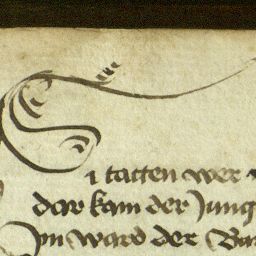 Si tatten wer
dar kam der Jung
Im ward der Bar